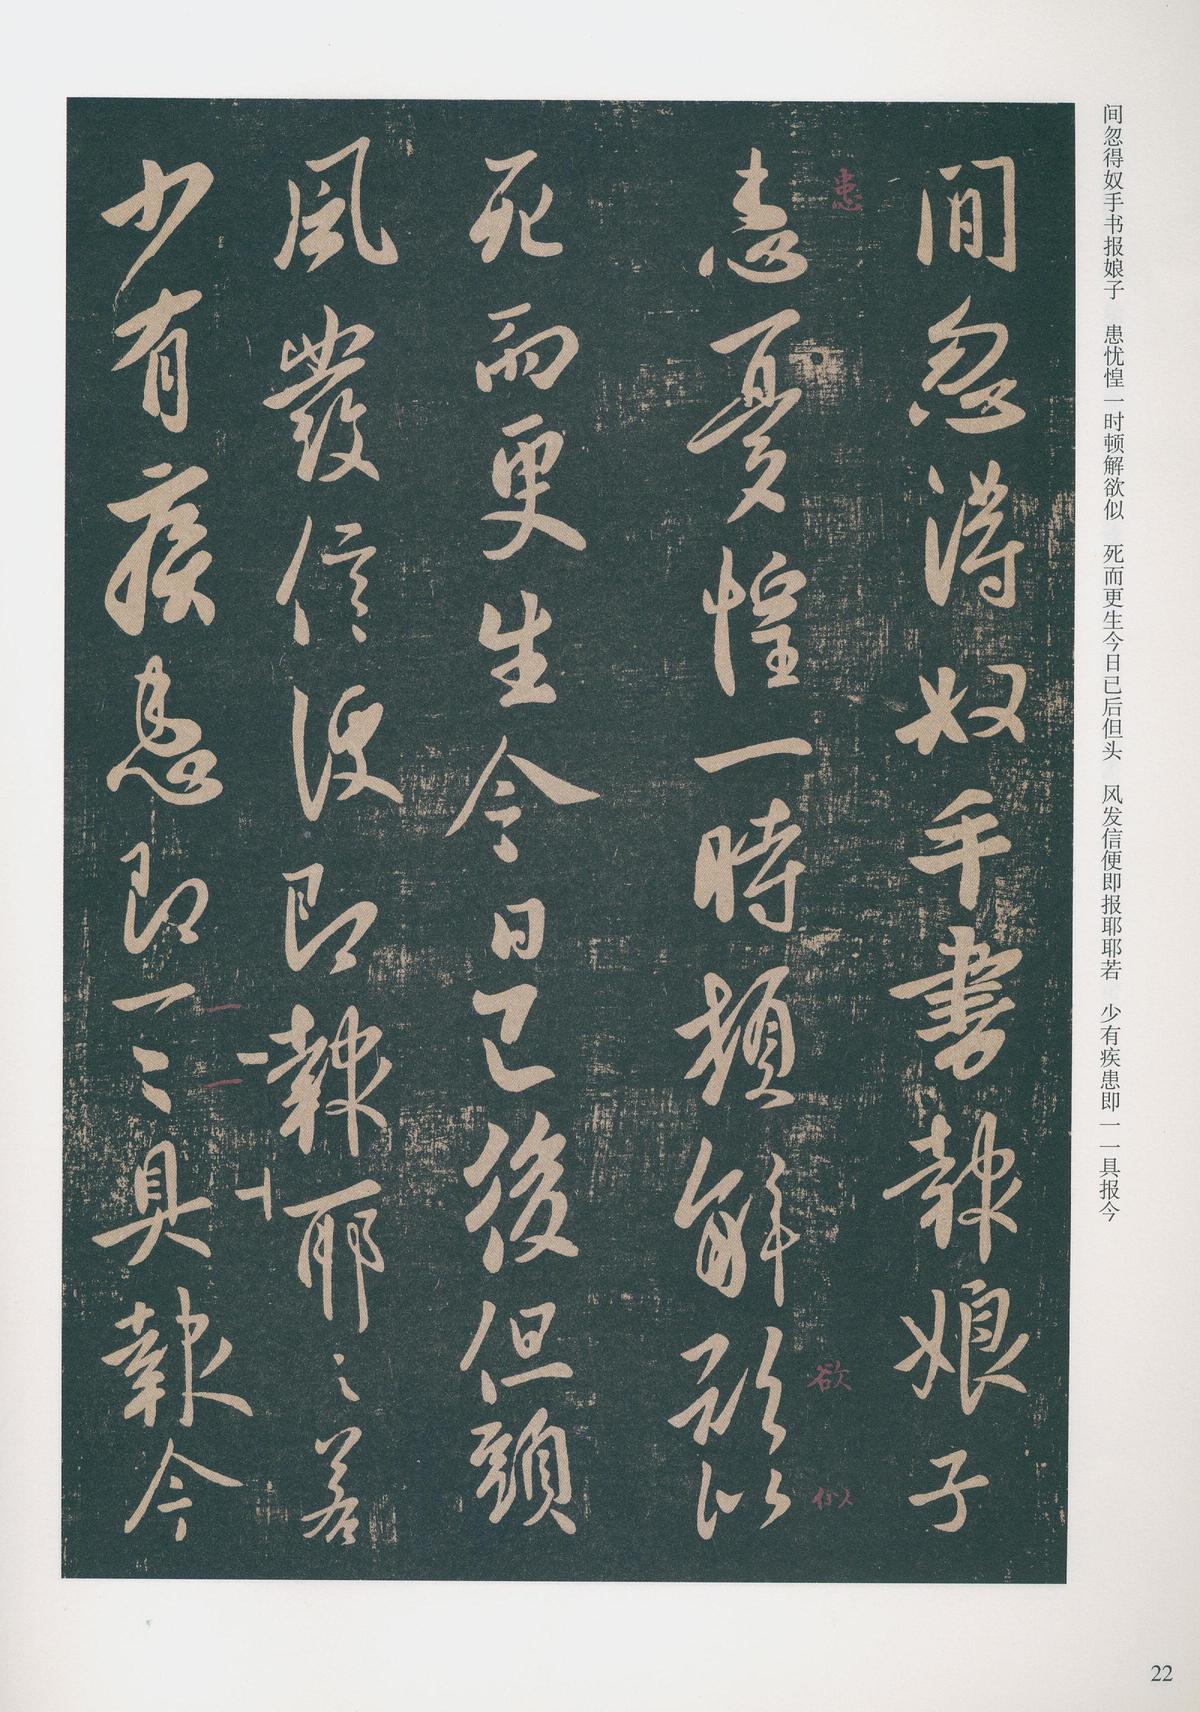 间忽得奴手书报娘子　患忧惶一时顿解欲似　死而更生今日已后但头　风发信便即报耶耶若　少有疾患即一一具报今
間忽得奴手書報娘子
患憂惶一時頓解欲似
死而更生今日已後但頭
風發信便即報耶〻若
少有疾患即一〻具報今
患
欲
似
22